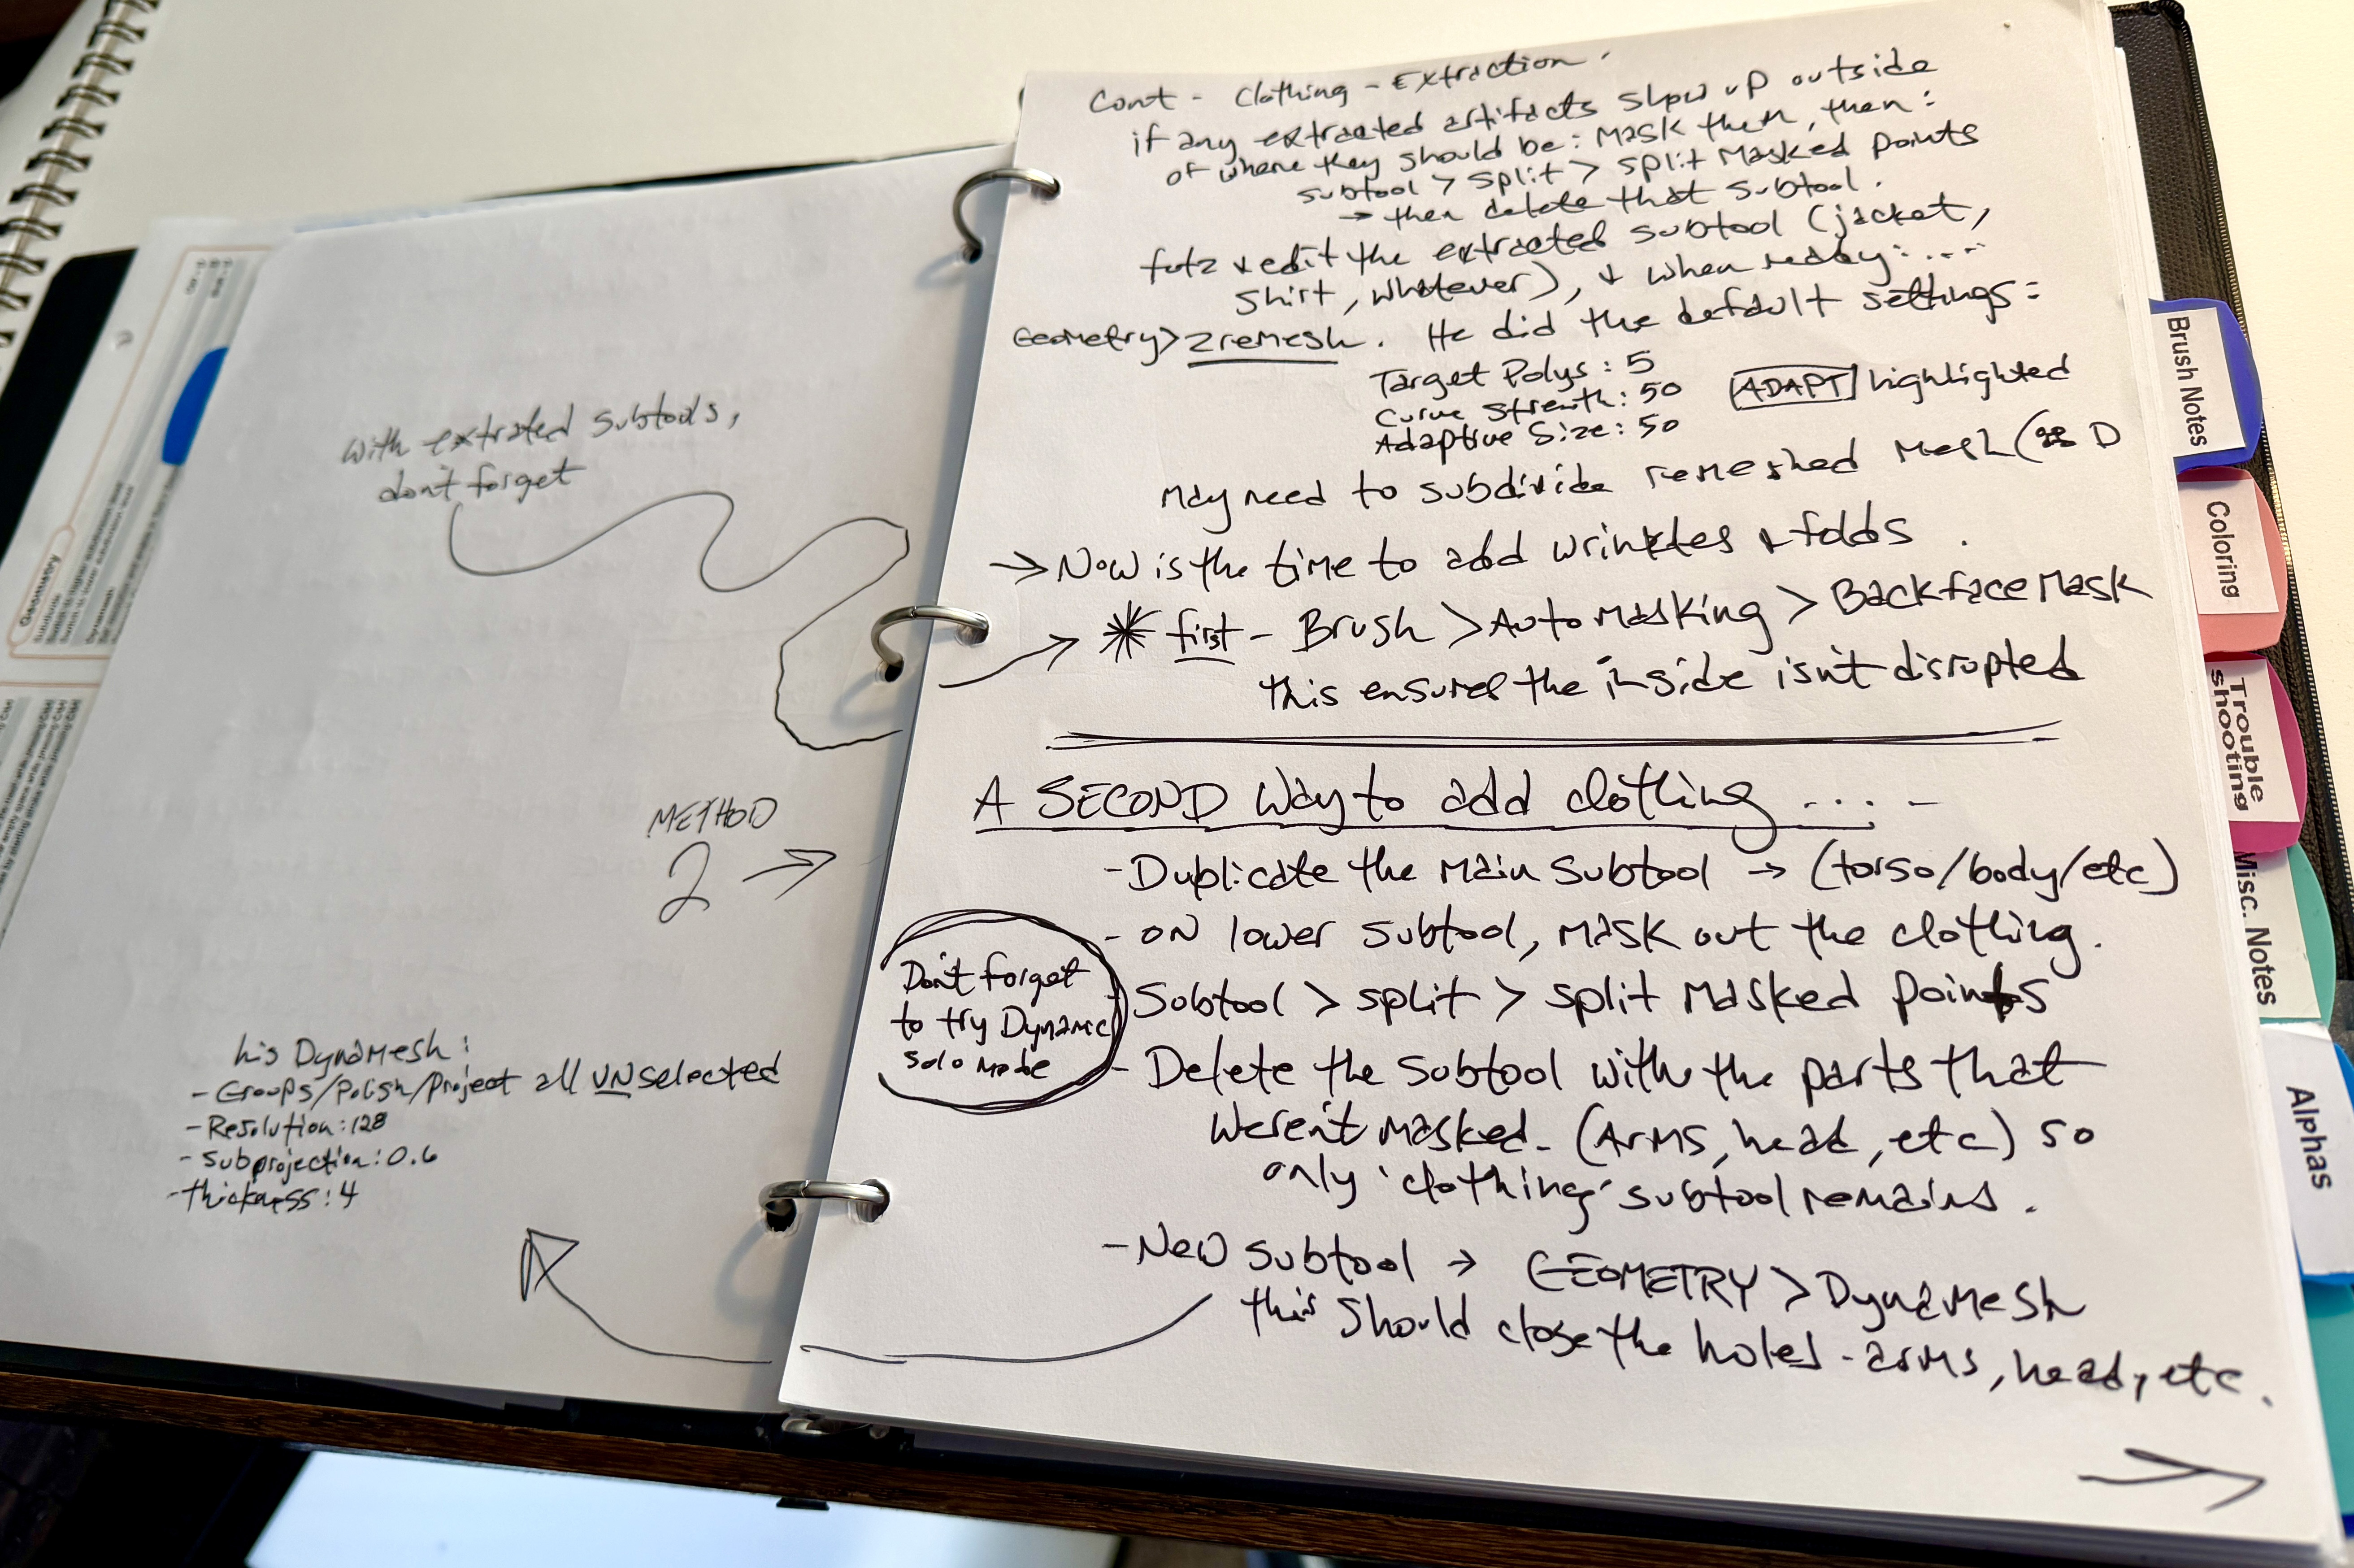 with extrated subtools,
don't forget
METHOD
2 →
his DynaMesh:
- Groups/Polish/Project all UNselected
- Resolution: 128
- Subprojection: 0.6
- thickness: 4
Geometry
Cont - Clothing - Extraction
if any extracted artifacts show up outside
of where they should be: Mask them, then:
subtool > split > split Masked points
→ then delete that subtool.
futz + edit the extracted subtool (jacket,
shirt, whatever), + when ready: ....
Geometry > Zremesh. He did the default settings:
Target Polys: 5
Curve Strenth: 50 ADAPT highlighted
Adaptive Size: 50
May need to subdivide remeshed Mesh ( D
→ Now is the time to add wrinkles + folds.
* first - Brush > Auto Masking > BackfaceMask
this ensures the inside isn't disrupted
A SECOND Way to add clothing .... -
- Duplicate the Main Subtool → (torso/body/etc)
- on lower subtool, mask out the clothing.
- Subtool > split > split Masked points
- Delete the subtool with the parts that
weren't masked. (Arms, head, etc) so
only 'clothing' subtool remains.
- New subtool → GEOMETRY > DynaMesh
this should close the holes - arms, head, etc.
Don't forget
to try Dynamic
Solo Mode
Brush Notes
Coloring
Trouble
shooting
Misc. Notes
Alphas